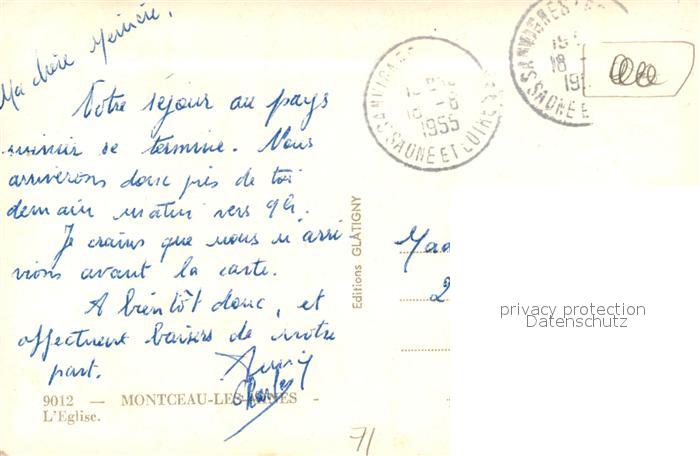 Ma chère Mémère,
Notre séjour au pays
minier se termine. Nous
arriverons donc près de toi
demain matin vers 9h.
Je crains que nous n'arri
vions avant la carte.
A bientôt donc, et
affectueux baisers de notre
part.
Charles
9012 — MONTCEAU-LES-MINES -
L'Eglise.
Editions GLATIGNY
SANVIGNES
18 -6
1955
SAONE ET LOIRE
SANVIGNES
18
SAONE E
Mad
2
privacy protection
Datenschutz
71